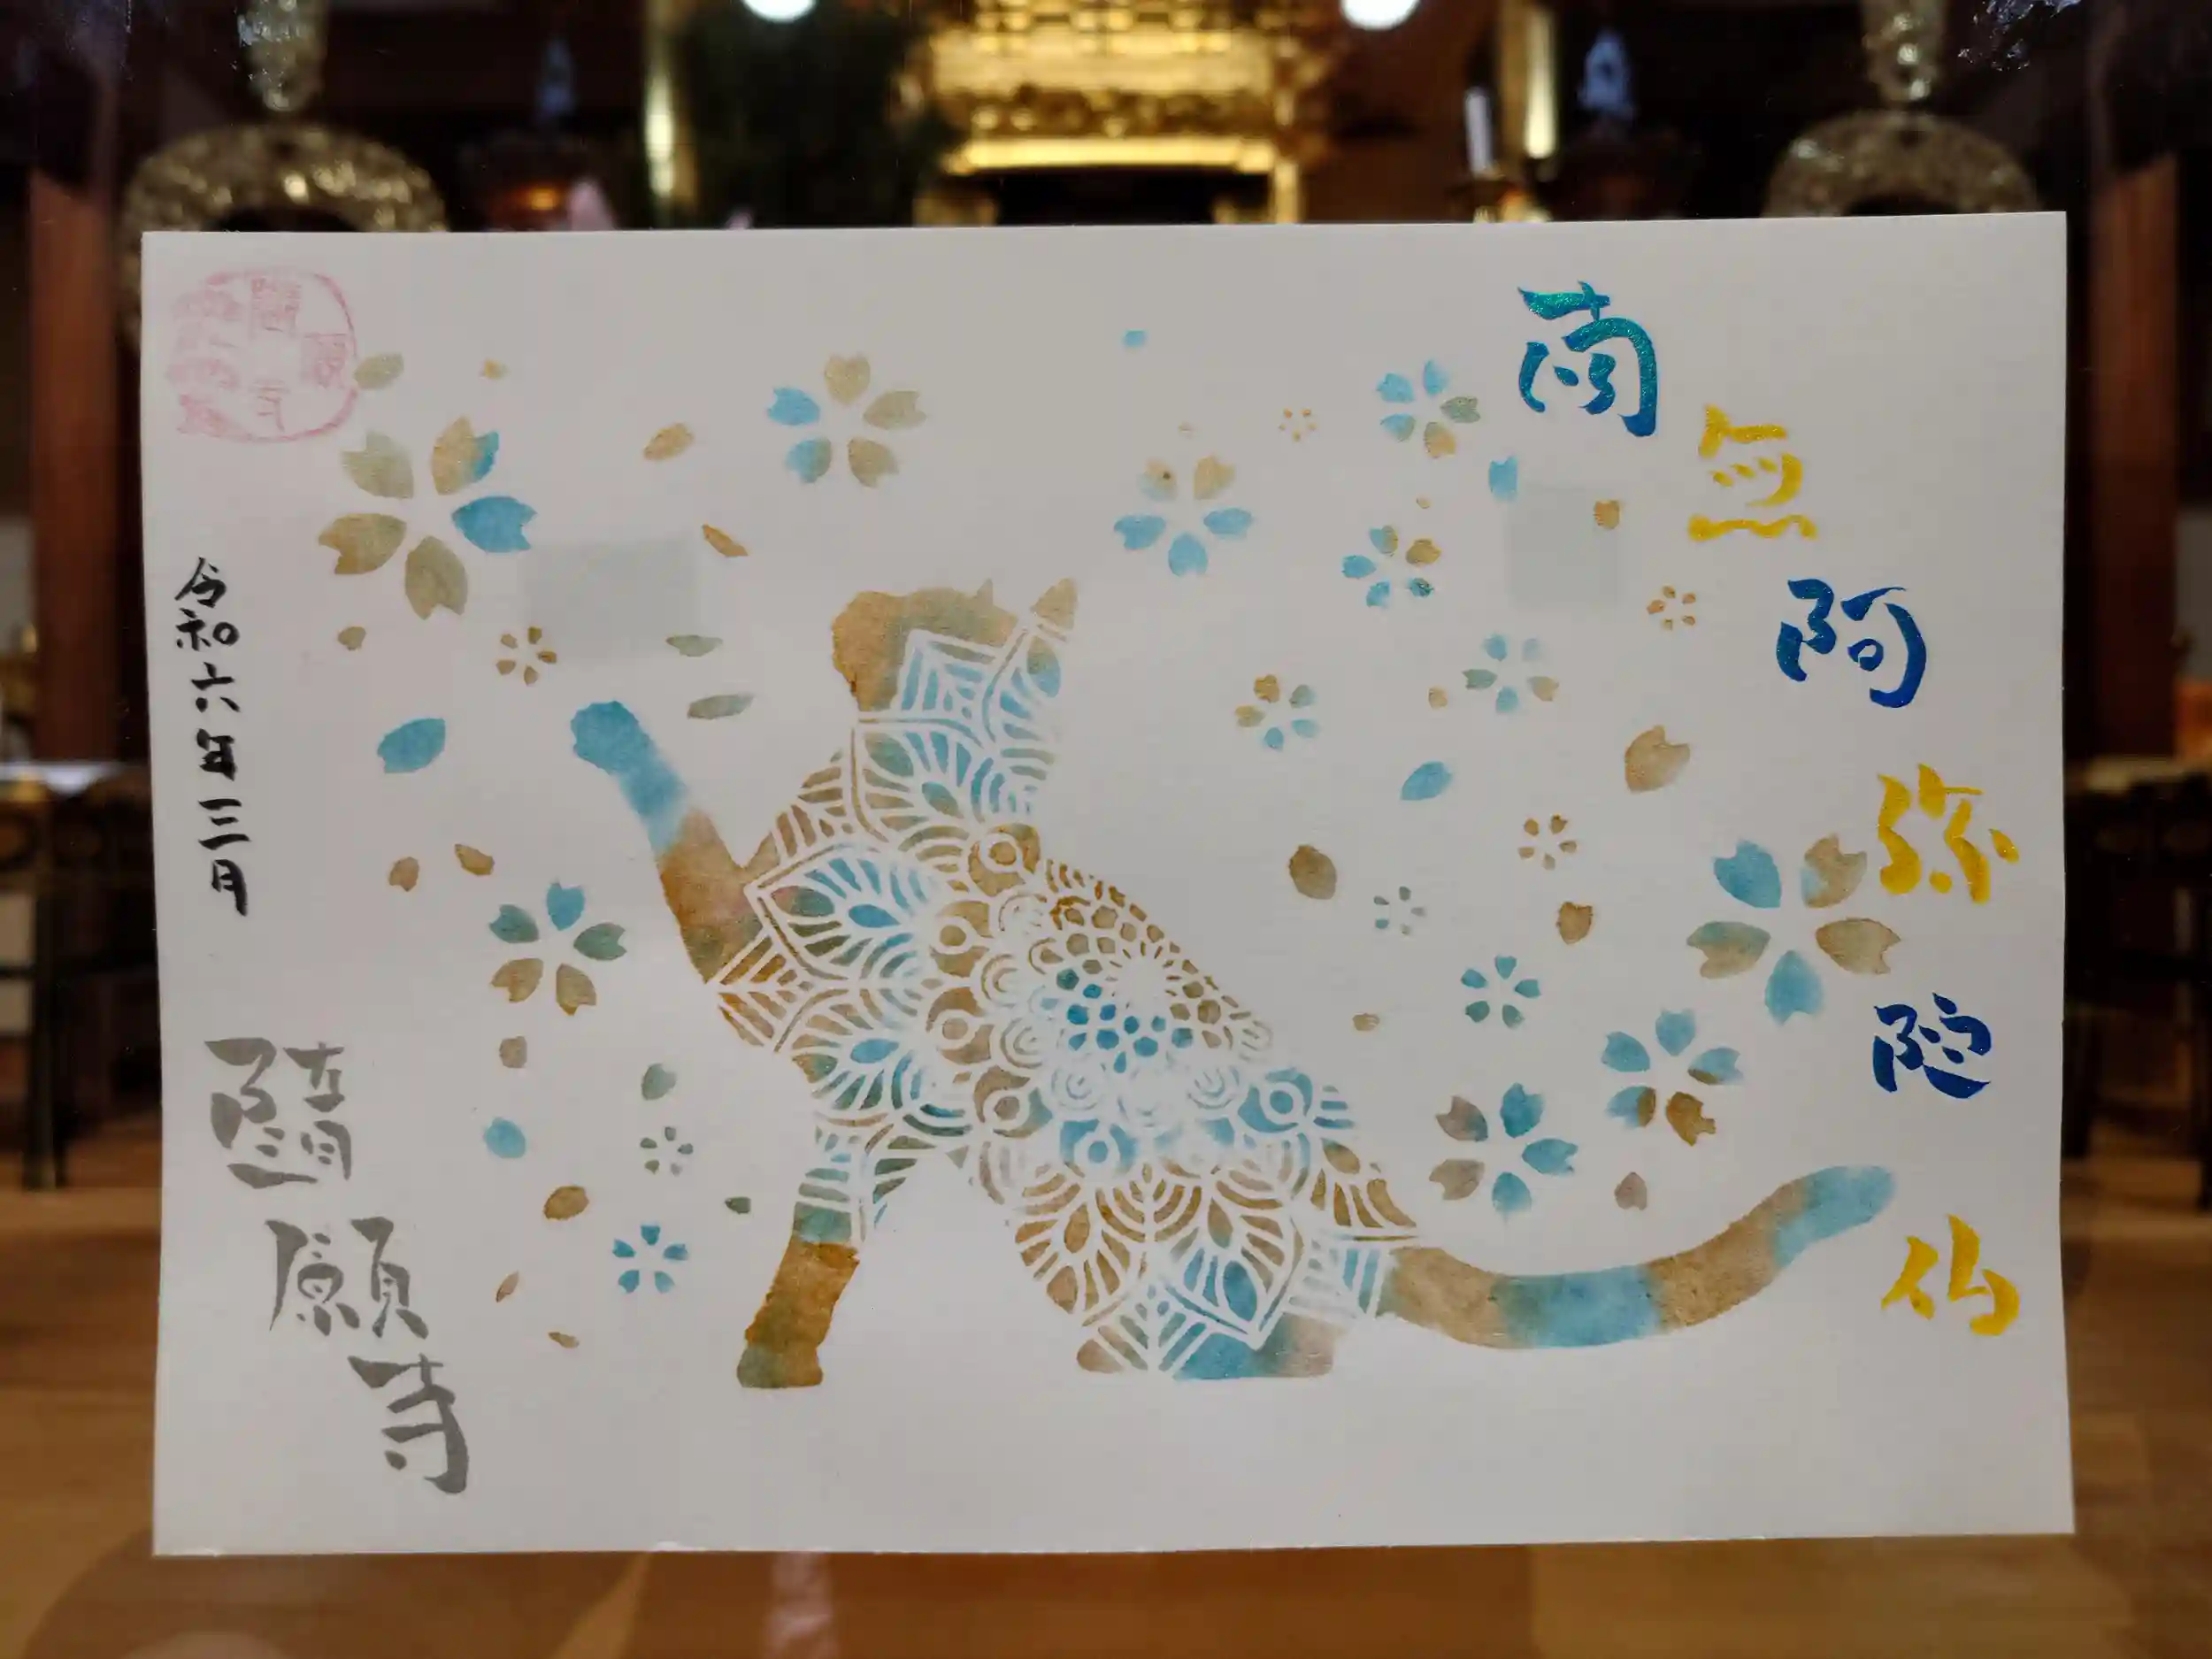 南無阿弥陀仏
令和六年三月
隨願寺
隨願寺